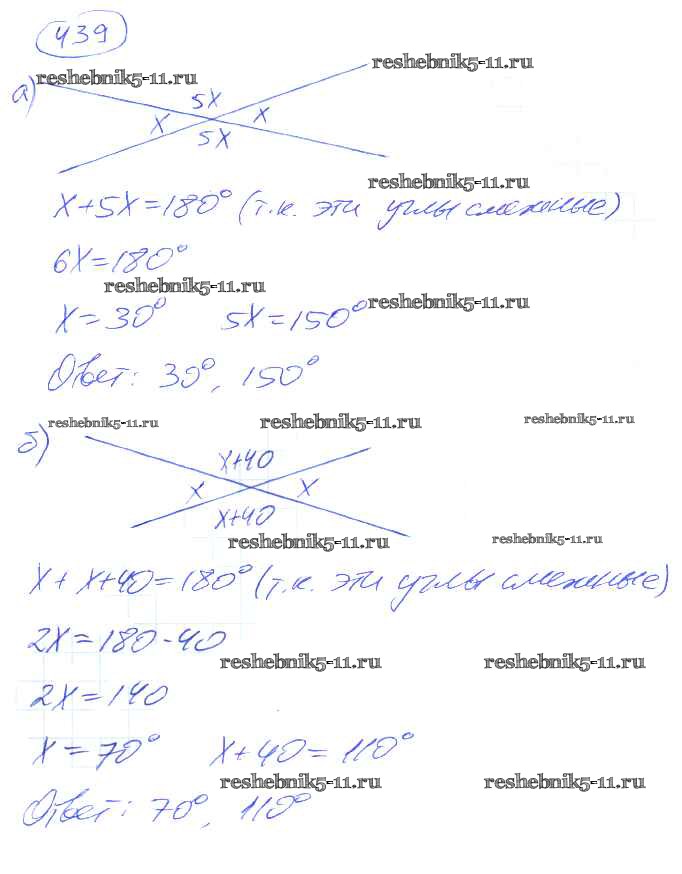 439
reshebnik5-11.ru
reshebnik5-11.ru
а)
5x
x
x
5x
reshebnik5-11.ru
x+5x=180° (т.к. эти углы смежные)
6x=180°
reshebnik5-11.ru
reshebnik5-11.ru
x=30° 5x=150°
Ответ: 30°, 150°
reshebnik5-11.ru
reshebnik5-11.ru
reshebnik5-11.ru
б)
x+40
x
x
x+40
reshebnik5-11.ru
reshebnik5-11.ru
x+x+40=180° (т.к. эти углы смежные)
2x=180-40
reshebnik5-11.ru
reshebnik5-11.ru
2x=140
x=70° x+40=110°
reshebnik5-11.ru
reshebnik5-11.ru
Ответ: 70°, 110°